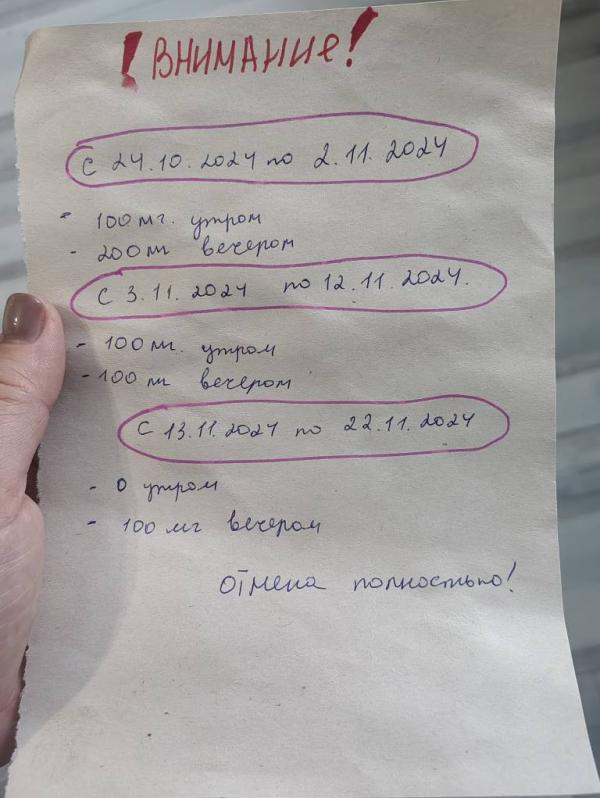 ! ВНИМАНИЕ!
С 24.10.2024 по 2.11.2024
- 100мг. утром
- 200мг вечером
С 3.11.2024 по 12.11.2024.
- 100мг. утром
- 100мг вечером
С 13.11.2024 по 22.11.2024
- 0 утром
- 100мг вечером
ОТМЕНА полностью!